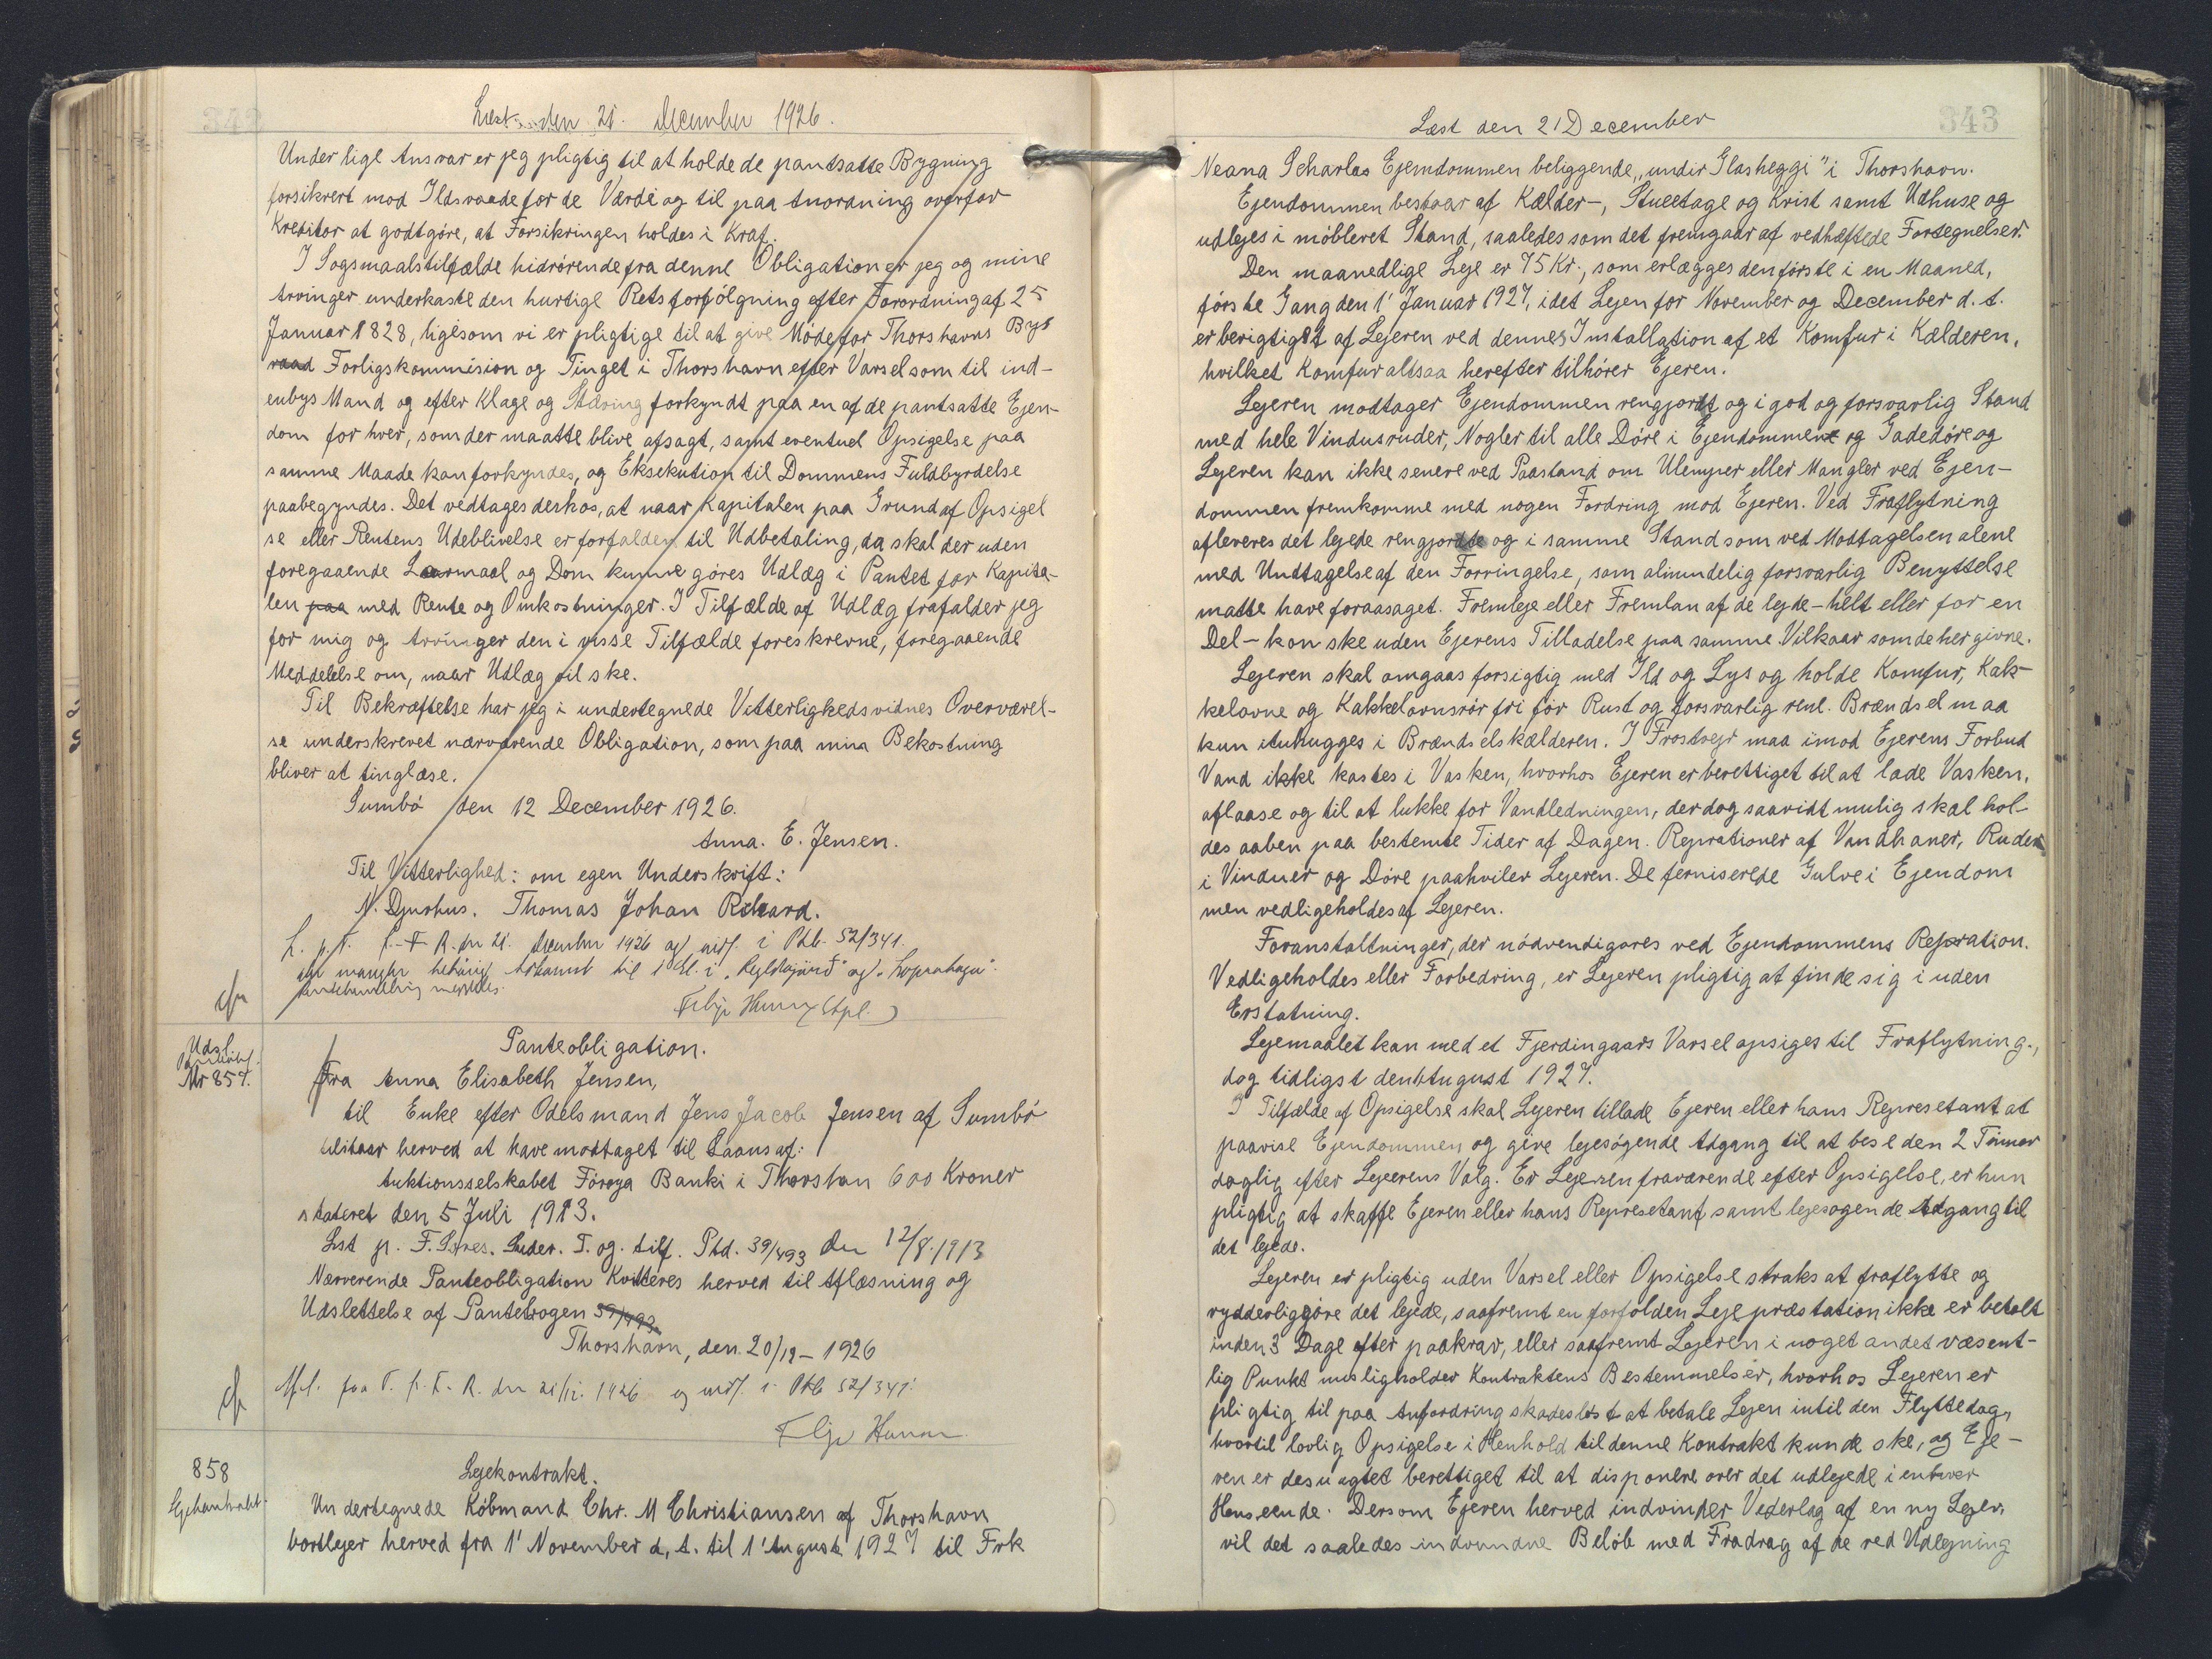 342
Læst den 21. December 1926.
Under lige Ansvar er jeg pligtig til at holde de pantsatte Bygning
forsikrert mod Ildsvaade for de Værdi og til paa Anordning overfor
Kreditor at godtgøre, at Forsikringen holdes i Kraf.
I Sogsmaalstilfælde hidrørende fra denne Obligation er jeg og mine
Arvinger underkaste den hurtige Retsforfølgning efter Forordning af 25
Januar 1828, ligesom vi er pligtige til at give Møde for Thorshavns Bys
raad Forligskommision og Tinget i Thorshavn efter Varsel som til ind-
enbys Mand og efter Klage og Stævning forkyndt paa en af de pantsatte Ejen-
dom for hver, som der maatte blive afsagt, samt eventuel Opsigelse paa
samme Maade kan forkyndes, og Eksekution til Dommens Fuldbyrdelse
paabegyndes. Det vedtages derhos, at naar Kapitalen paa Grund af Opsigel
se eller Rentens Udeblivelse er forfalden til Udbetaling, da skal der uden
foregaaende Laarmaal og Dom kunne gøres Udlæg i Pantet for Kapita-
len paa med Rente og Omkostninger. I Tilfælde af Udlæg frafalder jeg
for mig og Arvinger den i visse Tilfælde foreskrevne, foregaaende
Meddelelse om, naar Udlæg vil ske.
Til Bekræftelse har jeg i undertegnede Vitterlighedsvidnes Overværel-
se underskrevet nærværende Obligation, som paa min Bekostning
bliver at tinglæse.
Sumbø den 12 December 1926.
Anna. E. Jensen.
Til Vitterlighed: om egen Underskrift:
N. Djurhus. Thomas Johan
L. p. T. f. F. R. den 21. December 1926 og indf. i Ptb. 52/341.
mangler behørig Adkomst til i og
Panteobligation.
Udsl.
Nr 857.
Fra Anna Elisabeth Jensen,
til Enke efter Odelsmand Jens Jacob Jensen af Sumbø
tilstaar herved at have modtaget til Laans af:
Auktionsselskabet Föroya Banki i Thorshan 600 Kroner
dateret den 5 Juli 1913.
Lst p. F. Suder. T. og. tilf. Ptd. 39/493 den 12/8.1913
Nærverende Panteobligation Kvitteres herved til Aflæsning og
Udslettelse af Pantebogen 39/493
Thorshavn, den 20/12 - 1926
Afl. paa T. f. F. R. den 21/12. 1926 og indf. i Ptb 52/341.
858
Lejekontrakt.
Lejekontrakt.
Undertegnede Købmand Chr. M Christiansen af Thorshavn
bortlejer herved fra 1' November d, A. til 1' August 1927 til Frk
343
Læst den 21 December
Neana Scharlas Ejemdommen beliggende „undir Glasheggi" i Thorshavn.
Ejendommen bestaar af Kælder-, Stueetage og Kvist samt Udhuse og
udlejes i møbleret Stand, saaledes som det fremgaar af vedhæftede Fortegnelser.
Den maanedlige Leje er 75 Kr., som erlægges den første i en Maaned,
første Gang den 1' Januar 1927, idet Lejen for November og December d. A.
er berigtiget af Lejeren ved dennes Installation af et Komfur i Kælderen,
hvilket Komfur altsaa herefter tilhører Ejeren.
Lejeren modtager Ejendommen rengjordt og i god og forsvarlig Stand
med hele Vindusruder, Nøgler til alle Døre i Ejendommene og Gadedøre og
Lejeren kan ikke senere ved Paastand om Ulemper eller Mangler ved Ejen-
dommen fremkomme med nogen Fordring mod Ejeren. Ved Fraflytning
afleveres det lejede rengjordte og i samme Stand som ved Modtagelsen alene
med Undtagelse af den Forringelse, som alimindelig forsvarlig Benyttelse
matte have foraasaget. Fremleje eller Fremlan af de lejde - helt eller for en
Del - kon ske uden Ejerens Tilladelse paa samme Vilkaar som de her givne.
Lejeren skal omgaas forsigtig med Ild og Lys og holde Komfur, Kak-
kelovne og Kakkelovnsrør fri for Rust og forsvarlig rene. Brændsel maa
kun ituhugges i Brændselskælderen. I Frostvejr maa imod Ejerens Forbud
Vand ikke kastes i Vasken, hvorhos Ejeren er berettiget til at lade Vasken,
aflaase og til at lukke for Vandledningen, der dog saavidt mulig skal hol-
des aaben paa bestemte Tider af Dagen. Reprationer af Vandhaner, Ruder
i Vinduer og Døre paahviler Lejeren. De ferniserede Gulve i Ejendom
men vedligeholdes af Lejeren.
Foranstaltninger, der nødvendigøres ved Ejendommens Repration.
Vedligeholdes eller Forbedring, er Lejeren pligtig at finde sig i uden
Erstatning.
Lejemaalet kan med et Fjerdingaars Varsel opsiges til Fraflytning.,
dog tidligst den 1 August 1927.
I Tilfælde af Opsigelse skal Lejeren tillade Ejeren eller hans Represetant at
paavise Ejendommen og give lejesøgende Adgang til at bese den 2 Timer
daglig efter Lejerens Valg. Er Lejeren fraværende efter Opsigelse, er hun
pligtig at skaffe Ejeren eller hans Represetant samt lejesøgende Adgang til
det lejede.
Lejeren er pligtig uden Varsel eller Opsigelse straks at fraflytte og
rydderliggøre det lejede, saafremt en forfolden Leje præstation ikke er betalt
inden 3 Dage efter paakrav, eller saafremt Lejeren i noget andet væsent-
lig Punkt misligholder Kontraktens Bestemmelser, hvorhos Lejeren er
pligtig til paa Anfordring skadesløst at betale Lejen intil den Flyttedag,
hvortil lovlig Opsigelse i Henhold til denne Kontrakt kunde ske, og Eje-
ren er desuagtet berettiget til at disponere over det udlejede i enhver
Henseende. Dersom Ejeren herved indvinder Vederlag af en ny Lejer,
vil det saaledes indvundne Beløb med Fradrag af de ved Udlejning